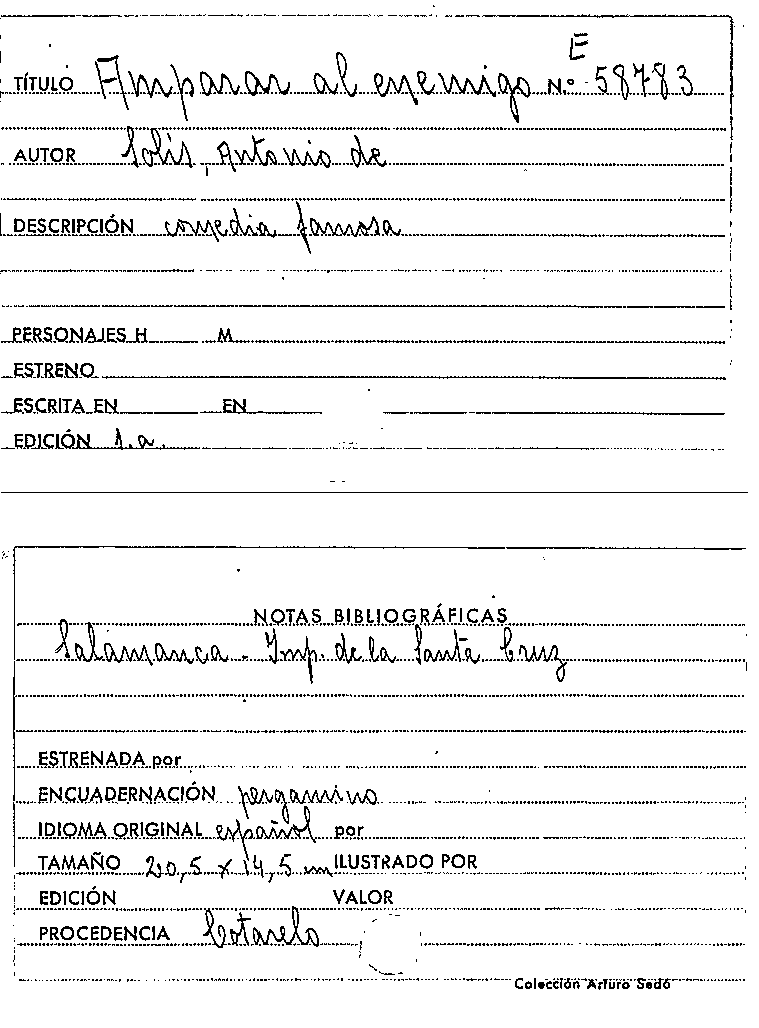 E
TÍTULO Amparar al enemigo N.º 58783
AUTOR Solís, Antonio de
DESCRIPCIÓN comedia famosa
PERSONAJES H M
ESTRENO
ESCRITA EN EN
EDICIÓN s.a.
NOTAS BIBLIOGRÁFICAS
Salamanca - Imp. de la Santa Cruz
ESTRENADA por
ENCUADERNACIÓN pergamino
IDIOMA ORIGINAL español por
TAMAÑO 20,5 x 14,5 cm ILUSTRADO POR
EDICIÓN VALOR
PROCEDENCIA Cotarelo
Colección Arturo Sedó